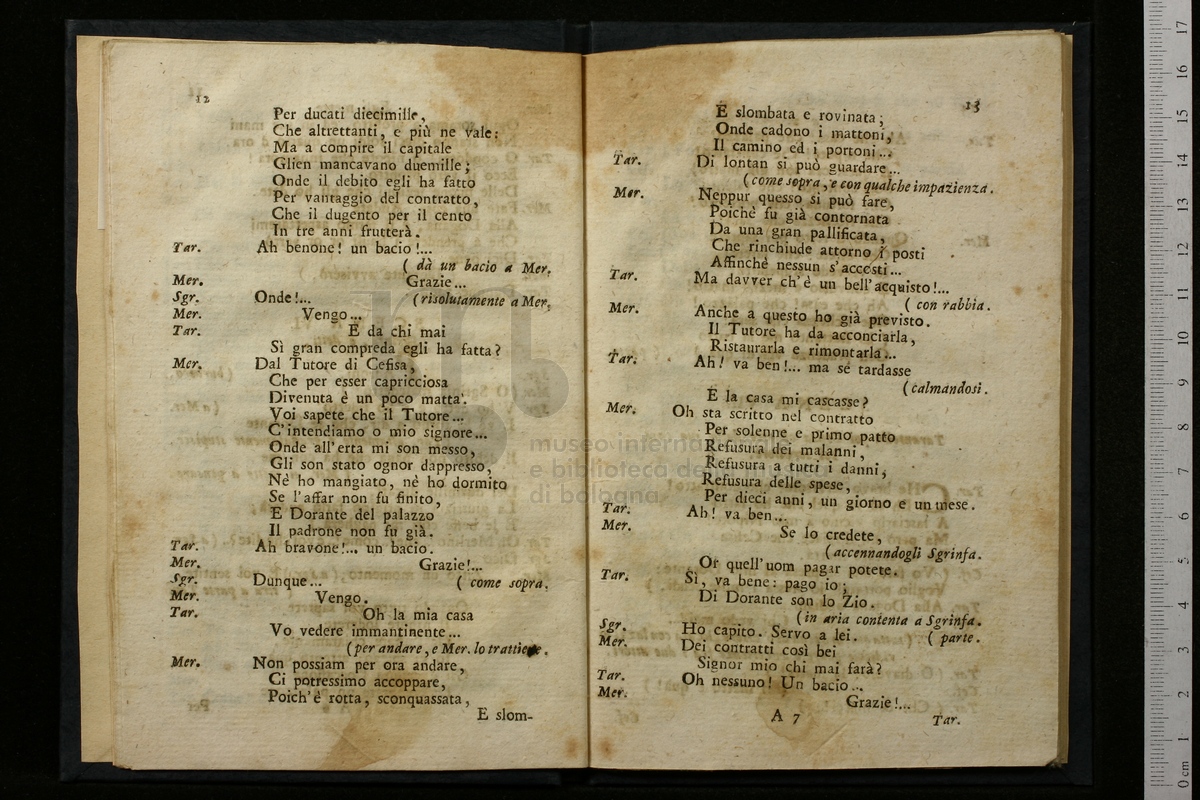 12
Per ducati diecimille,
Che altrettanti, e più ne vale:
Ma a compire il capitale
Glien mancavano duemille;
Onde il debito egli ha fatto
Per vantaggio del contratto,
Che il dugento per il cento
In tre anni frutterà.
Tar. Ah benone! un bacio!...
( dà un bacio a Mer.
Mer. Grazie...
Sgr. Onde!... (risolutamente a Mer.
Mer. Vengo...
Tar. E da chi mai
Sì gran compreda egli ha fatta?
Mer. Dal Tutore di Cefisa,
Che per esser capricciosa
Divenuta è un poco matta.
Voi sapete che il Tutore...
C'intendiamo o mio signore...
Onde all'erta mi son messo,
Gli son stato ognor dappresso,
Nè ho mangiato, nè ho dormito
Se l'affar non fu finito,
E Dorante del palazzo
Il padrone non fu già.
Tar. Ah bravone!... un bacio.
Mer. Grazie!...
Sgr. Dunque... ( come sopra.
Mer. Vengo.
Tar. Oh la mia casa
Vo vedere immantinente...
(per andare, e Mer. lo trattiene.
Mer. Non possiam per ora andare,
Ci potressimo accoppare,
Poich'è rotta, sconquassata,
E slom-
13
E slombata e rovinata;
Onde cadono i mattoni,
Il camino ed i portoni...
Tar. Di lontan si può guardare...
(come sopra, e con qualche impazienza.
Mer. Neppur quesso si può fare,
Poichè fu già contornata
Da una gran pallificata,
Che rinchiude attorno i posti
Affinchè nessun s'accosti...
Tar. Ma davver ch'è un bell'acquisto!...
( con rabbia.
Mer. Anche a questo ho già previsto.
Il Tutore ha da acconciarla,
Ristaurarla e rimontarla...
Tar. Ah! va ben!... ma se tardasse
(calmandosi.
E la casa mi cascasse?
Mer. Oh sta scritto nel contratto
Per solenne e primo patto
Refusura dei malanni,
Refusura a tutti i danni,
Refusura delle spese,
Per dieci anni, un giorno e un mese.
Tar. Ah! va ben...
Mer. Se lo credete,
(accennandogli Sgrinfa.
Or quell'uom pagar potete.
Tar. Sì, va bene: pago io;
Di Dorante son lo Zio.
(in aria contenta a Sgrinfa.
Sgr. Ho capito. Servo a lei. ( parte.
Mer. Dei contratti così bei
Signor mio chi mai farà?
Tar. Oh nessuno! Un bacio...
Mer. Grazie!...
A 7 Tar.
museo internazionale
e biblioteca della musica
di bologna